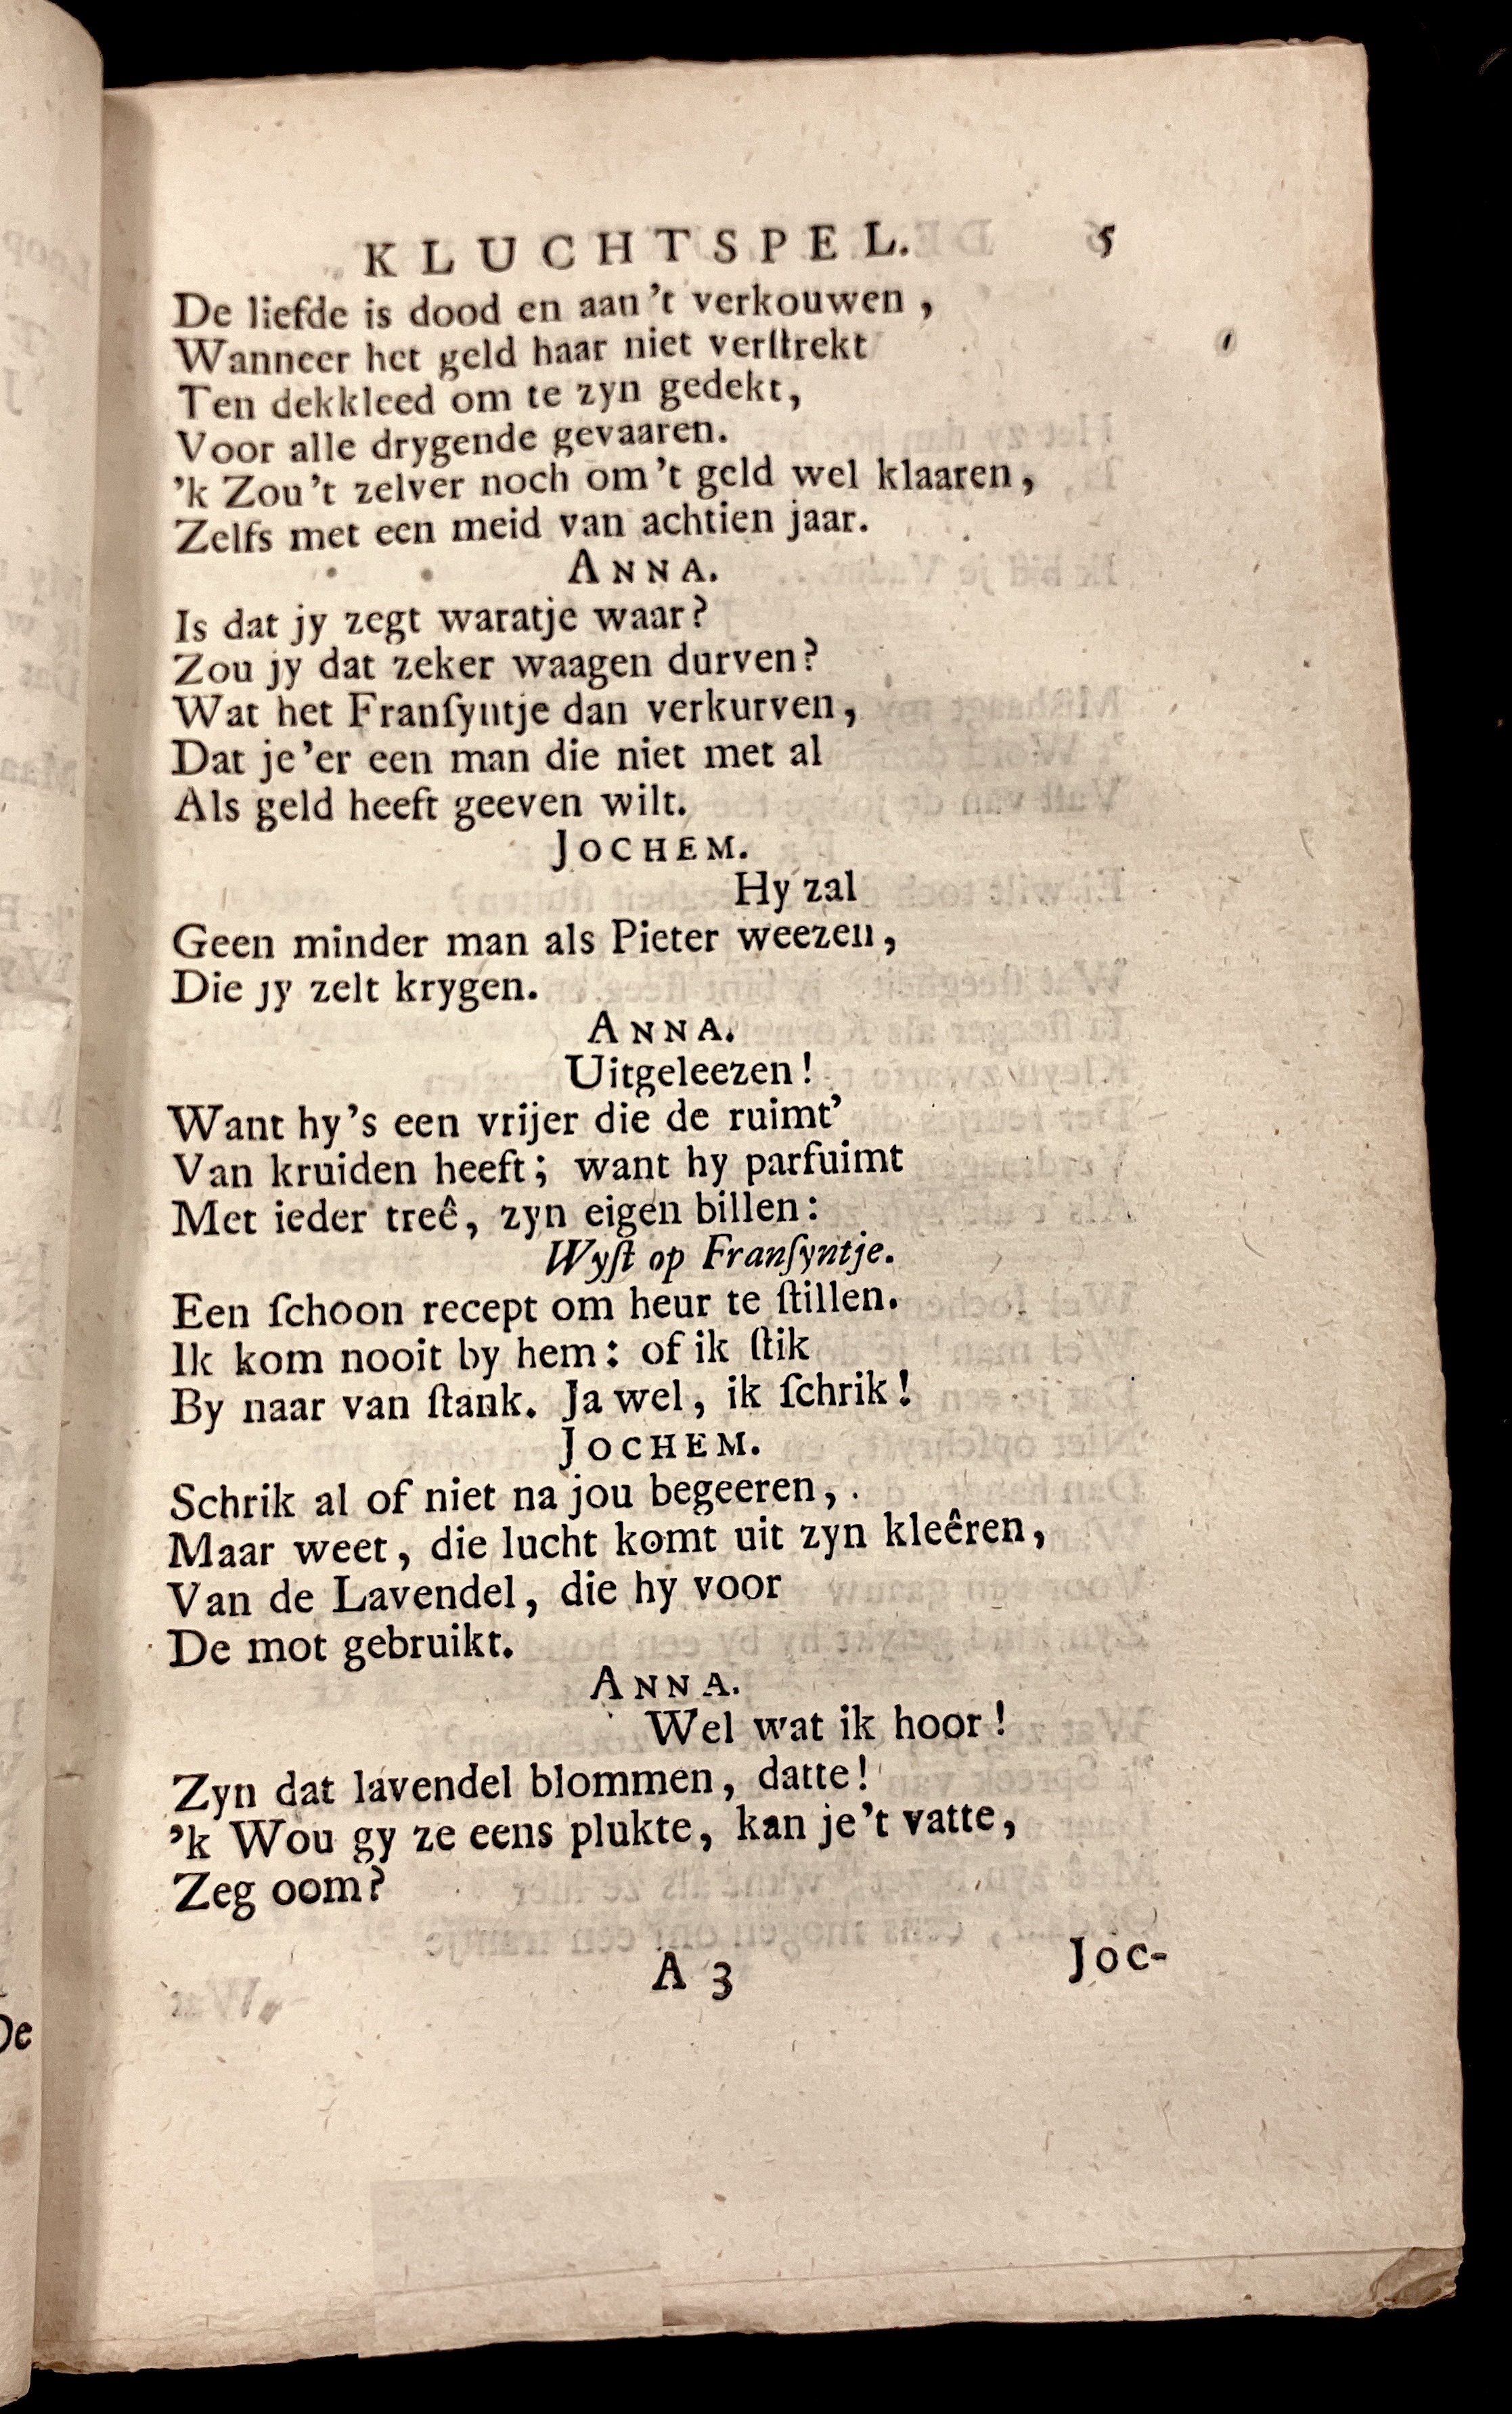 KLUCHTSPEL. 5
De liefde is dood en aan 't verkouwen,
Wanneer het geld haar niet verſtrekt
Ten dekkleed om te zyn gedekt,
Voor alle drygende gevaaren.
'k Zou 't zelver noch om 't geld wel klaaren,
Zelfs met een meid van achtien jaar.
ANNA.
Is dat jy zegt waratje waar?
Zou jy dat zeker waagen durven?
Wat het Franſyntje dan verkurven,
Dat je 'er een man die niet met al
Als geld heeft geeven wilt.
JOCHEM.
Hy zal
Geen minder man als Pieter weezen,
Die jy zelt krygen.
ANNA.
Uitgeleezen!
Want hy's een vrijer die de ruimt'
Van kruiden heeft; want hy parfuimt
Met ieder treê, zyn eigen billen:
Wyſt op Franſyntje.
Een ſchoon recept om heur te ſtillen.
Ik kom nooit by hem: of ik ſtik
By naar van ſtank. Ja wel, ik ſchrik!
JOCHEM.
Schrik al of niet na jou begeeren,
Maar weet, die lucht komt uit zyn kleêren,
Van de Lavendel, die hy voor
De mot gebruikt.
ANNA.
Wel wat ik hoor!
Zyn dat lavendel blommen, datte!
'k Wou gy ze eens plukte, kan je 't vatte,
Zeg oom?
A 3 Joc-
De